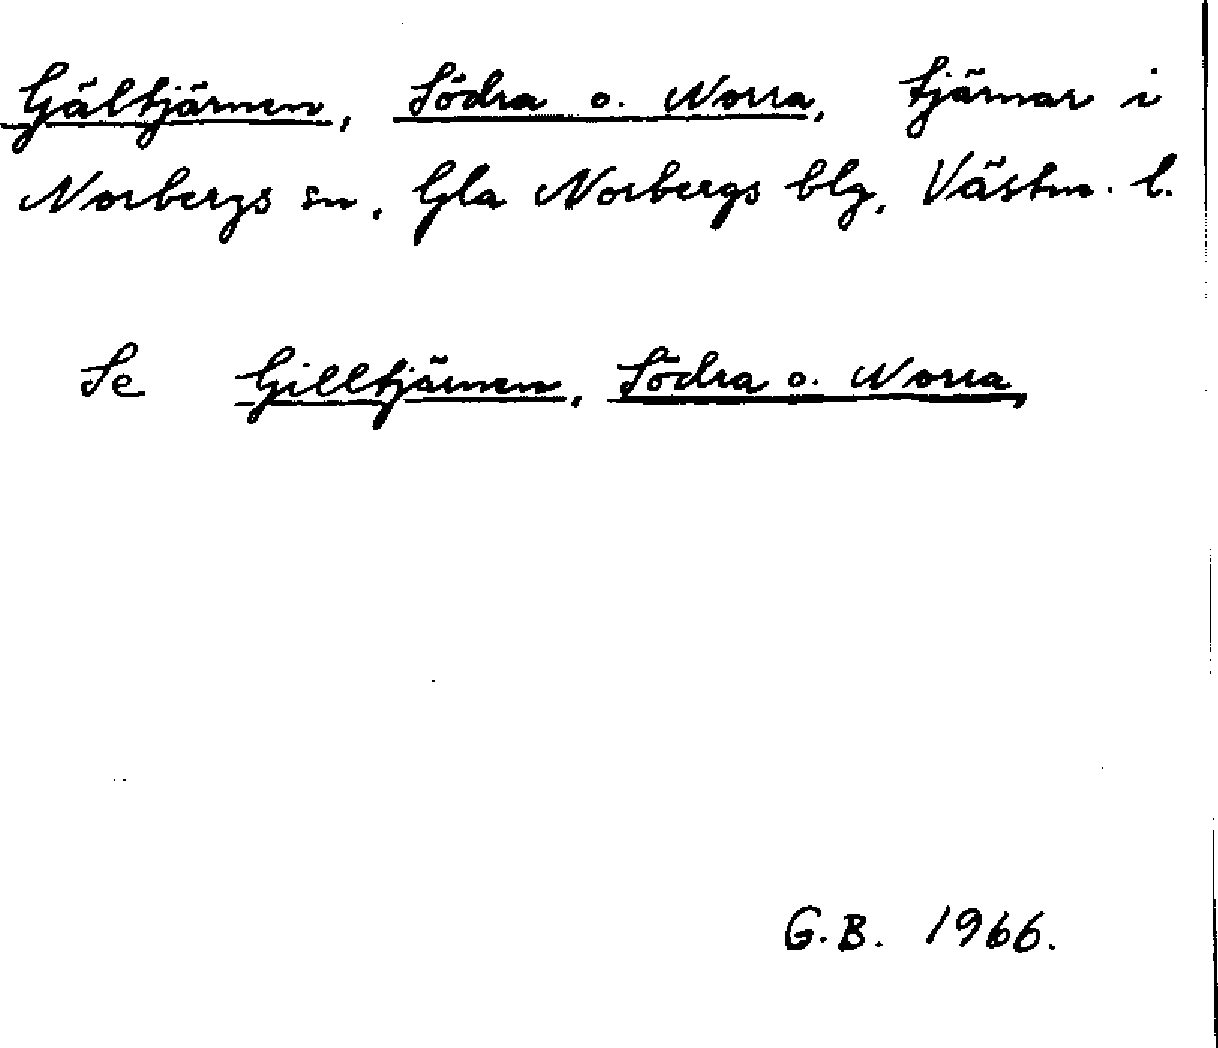 Gältjärnen, Södra o. Norra, tjärnar i
Norbergs sn, Gla Norbergs blg, Västm. l.
Se Gilltjärnen, Södra o. Norra,
G.B. 1966.